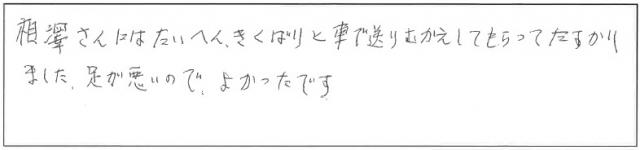 相澤さんにはたいへん、きくばりと車で送りむかえしてもらってたすかり
ました、足が悪いので、よかったです